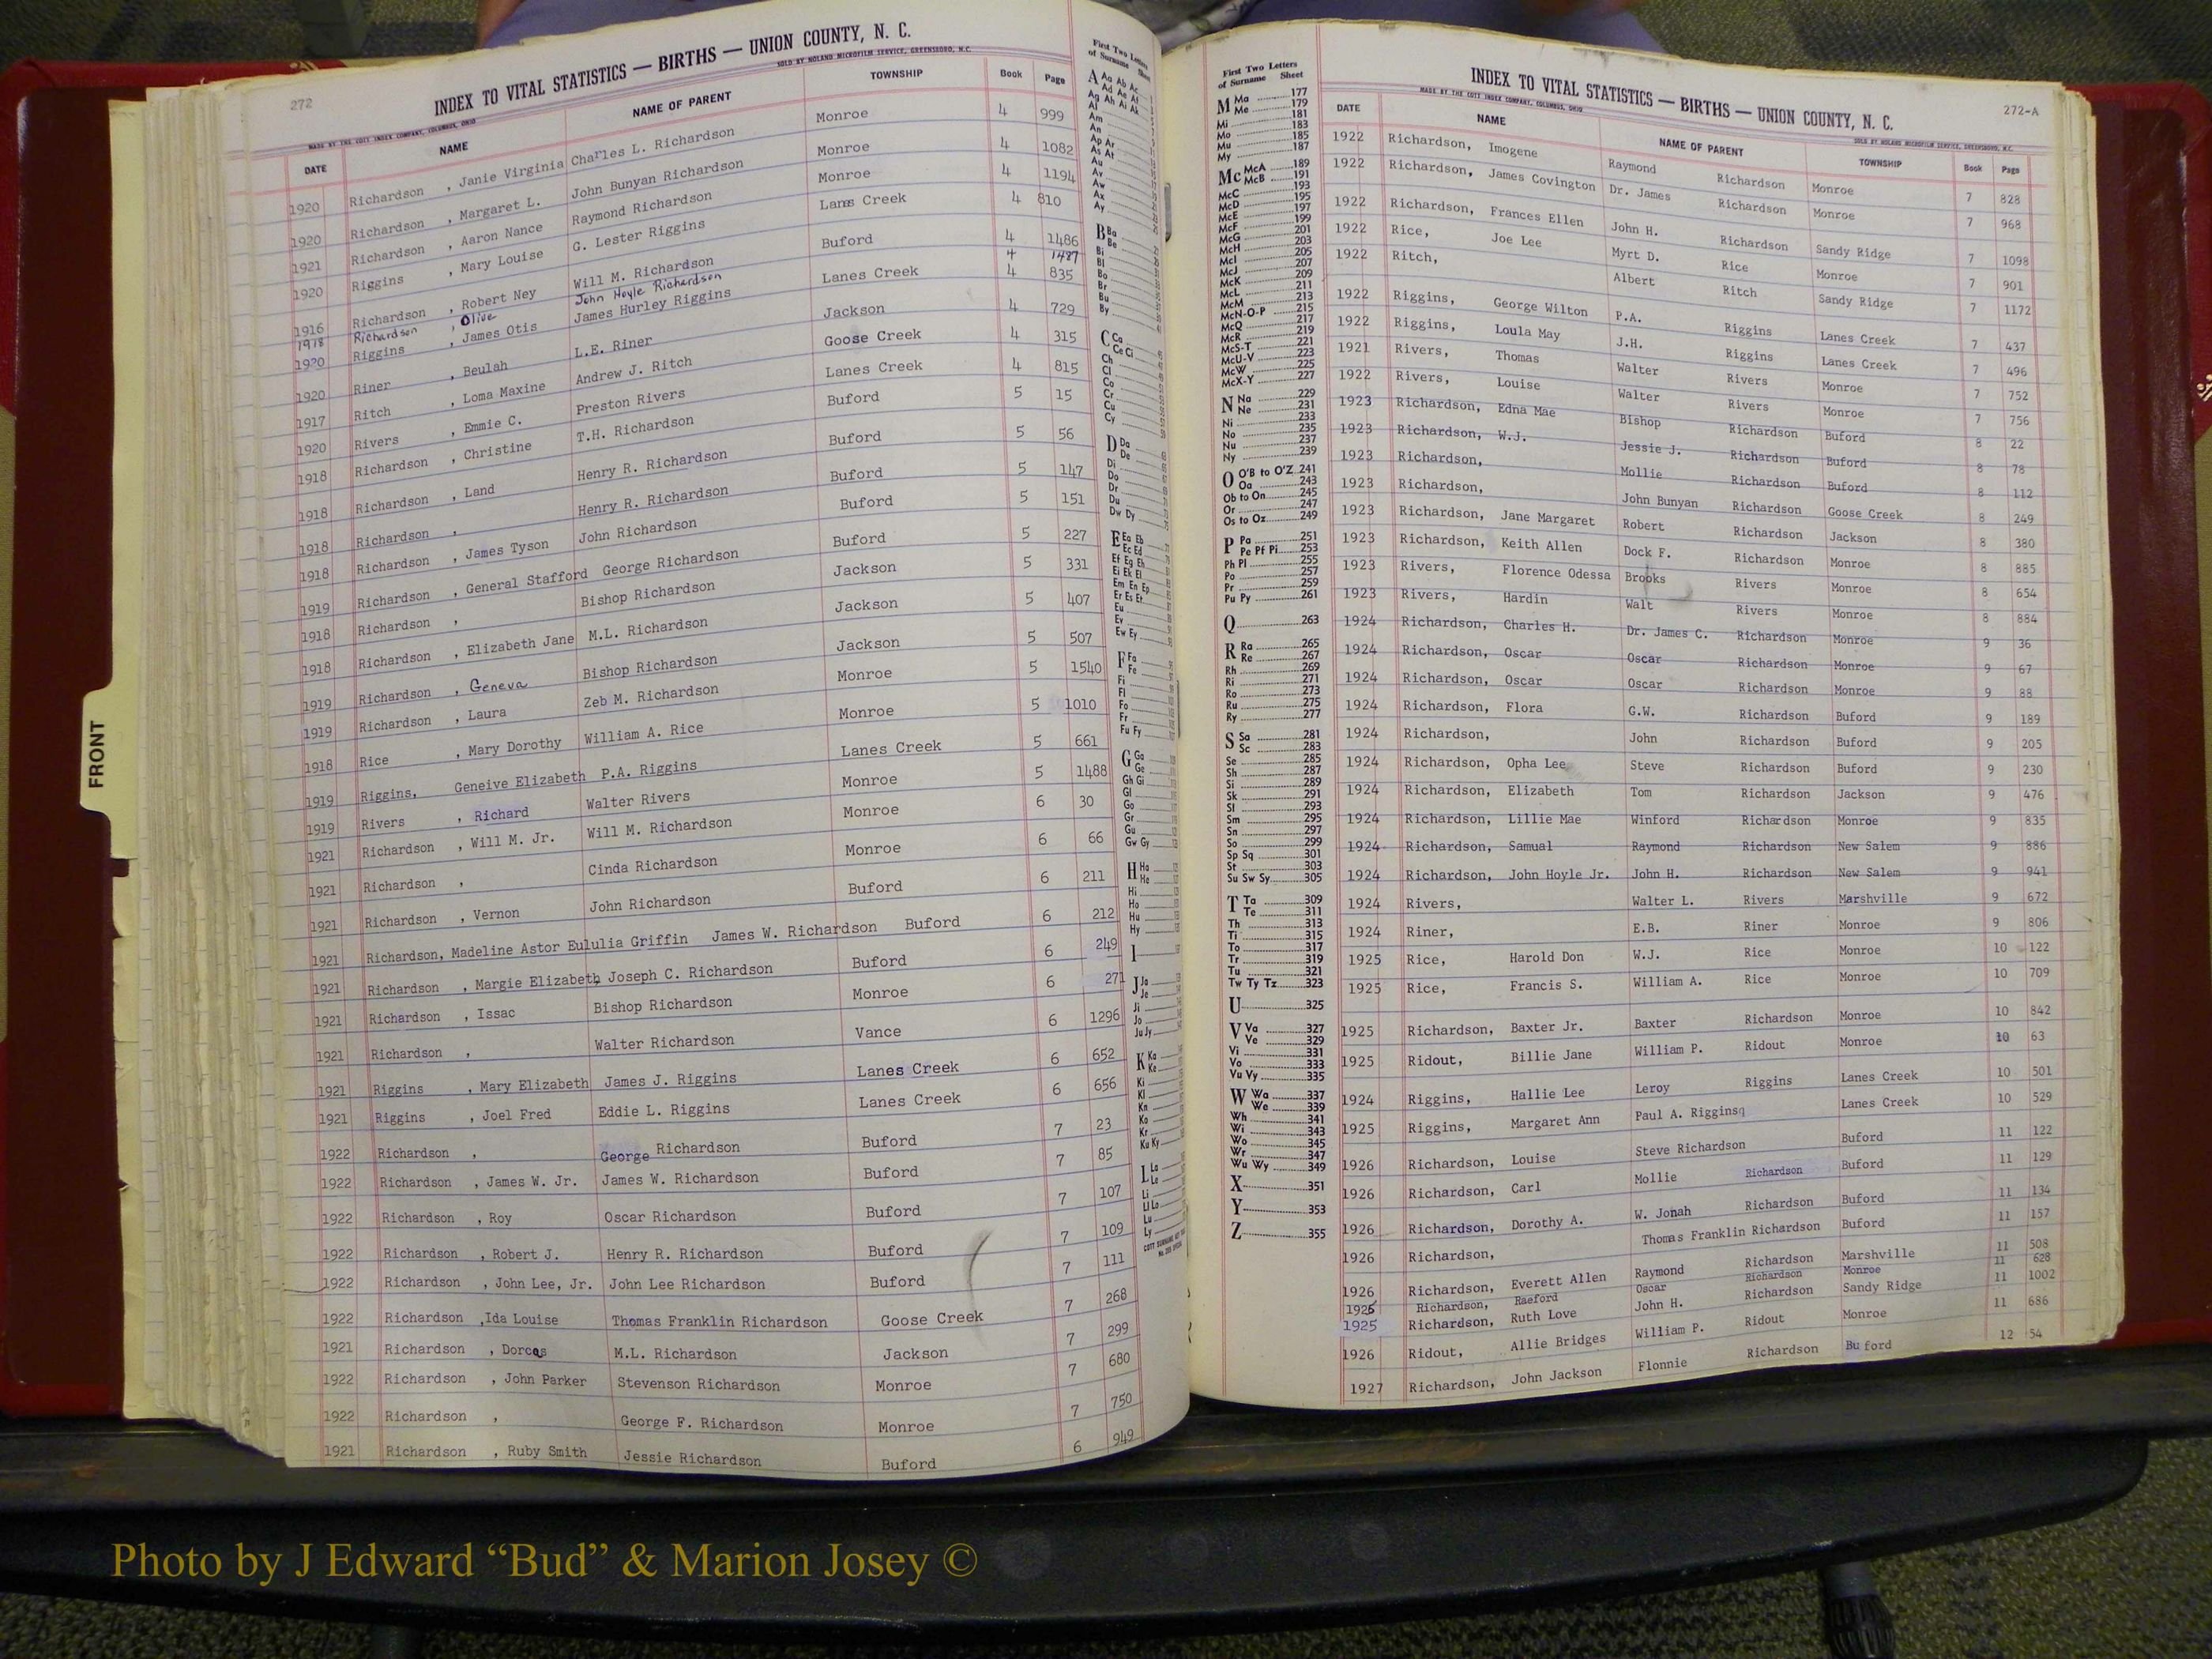 272
INDEX TO VITAL STATISTICS — BIRTHS — UNION COUNTY, N. C.
MADE BY THE COTT INDEX COMPANY, COLUMBUS, OHIO SOLD BY NOLAND MICROFILM SERVICE, GREENSBORO, N.C.
DATE NAME NAME OF PARENT TOWNSHIP Book Page
1920 Richardson , Janie Virginia Charles L. Richardson Monroe 4 999
1920 Richardson , Margaret L. John Bunyan Richardson Monroe 4 1082
1921 Richardson , Aaron Nance Raymond Richardson Monroe 4 1194
1920 Riggins , Mary Louise G. Lester Riggins Lanes Creek 4 810
1916 Richardson , Robert Ney Will M. Richardson Buford 4 1486
1918 Richardson , Olive John Hoyle Richardson 4 1487
1920 Riggins , James Otis James Hurley Riggins Lanes Creek 4 835
1920 Riner , Beulah L.E. Riner Jackson 4 729
1917 Ritch , Loma Maxine Andrew J. Ritch Goose Creek 4 315
1920 Rivers , Emmie C. Preston Rivers Lanes Creek 4 815
1918 Richardson , Christine T.H. Richardson Buford 5 15
1918 Richardson , Land Henry R. Richardson Buford 5 56
1918 Richardson , Henry R. Richardson Buford 5 147
1918 Richardson , James Tyson John Richardson Buford 5 151
1919 Richardson , General Stafford George Richardson Buford 5 227
1918 Richardson , Bishop Richardson Jackson 5 331
1918 Richardson , Elizabeth Jane M.L. Richardson Jackson 5 407
1919 Richardson , Geneva Bishop Richardson Jackson 5 507
1919 Richardson , Laura Zeb M. Richardson Monroe 5 1540
1918 Rice , Mary Dorothy William A. Rice Monroe 5 1010
1919 Riggins, Geneive Elizabeth P.A. Riggins Lanes Creek 5 661
1919 Rivers , Richard Walter Rivers Monroe 5 1488
1921 Richardson , Will M. Jr. Will M. Richardson Monroe 6 30
1921 Richardson , Cinda Richardson Monroe 6 66
1921 Richardson , Vernon John Richardson Buford 6 211
1921 Richardson, Madeline Astor Eululia Griffin James W. Richardson Buford 6 212
1921 Richardson , Margie Elizabeth Joseph C. Richardson Buford 6 249
1921 Richardson , Issac Bishop Richardson Monroe 6 271
1921 Richardson , Walter Richardson Vance 6 1296
1921 Riggins , Mary Elizabeth James J. Riggins Lanes Creek 6 652
1921 Riggins , Joel Fred Eddie L. Riggins Lanes Creek 6 656
1922 Richardson , George Richardson Buford 7 23
1922 Richardson , James W. Jr. James W. Richardson Buford 7 85
1922 Richardson , Roy Oscar Richardson Buford 7 107
1922 Richardson , Robert J. Henry R. Richardson Buford 7 109
1922 Richardson , John Lee, Jr. John Lee Richardson Buford 7 111
1922 Richardson ,Ida Louise Thomas Franklin Richardson Goose Creek 7 268
1921 Richardson , Dorcas M.L. Richardson Jackson 7 299
1922 Richardson , John Parker Stevenson Richardson Monroe 7 680
1922 Richardson , George F. Richardson Monroe 7 750
1921 Richardson , Ruby Smith Jessie Richardson Buford 6 949
FRONT
First Two Letters of Surname Sheet
A Aa Ab Ac
Ad Ae Af
Ag Ah Ai Ak
Al
Am
An
Ap Ar
As At
Au
Av
Aw
Ax
Ay
B Ba
Be
Bi
Bl
Bo
Br
Bu
By
C Ca
Ce Ci
Ch
Cl
Co
Cr
Cu
Cy
D Da
De
Di
Do
Dr
Du
Dw Dy
E Ea Eb
Ec Ed
Ef Eg Eh
Ei Ek El
Em En Ep
Er Es Et
Eu
Ev
Ew Ey
F Fa
Fe
Fi
Fl
Fo
Fr
Fu Fy
G Ga
Ge
Gh Gi
Gl
Go
Gr
Gu
Gw Gy
H Ha
He
Hi
Ho
Hu
Hy
I
J Ja
Je
Ji
Jo
Ju Jy
K Ka
Ke
Ki
Kl
Kn
Ko
Kr
Ku Ky
L La
Le
Li
Ll Lo
Lu
Ly
First Two Letters
of Surname Sheet
M Ma 177
Me 179
Mi 181
Mo 183
Mu 185
My 187
Mc McA 189
McB 191
McC 193
McD 195
McE 197
McF 199
McG 201
McH 203
McI 205
McJ 207
McK 209
McL 211
McM 213
McN-O-P 215
McQ 217
McR 219
McS-T 221
McU-V 223
McW 225
McX-Y 227
N Na 229
Ne 231
Ni 233
No 235
Nu 237
Ny 239
O O'B to O'Z 241
Oa 243
Ob to On 245
Or 247
Os to Oz 249
P Pa 251
Pe Pf Pi 253
Ph Pl 255
Po 257
Pr 259
Pu Py 261
Q 263
R Ra 265
Re 267
Rh 269
Ri 271
Ro 273
Ru 275
Ry 277
S Sa 281
Sc 283
Se 285
Sh 287
Si 289
Sk 291
Sl 293
Sm 295
Sn 297
So 299
Sp Sq 301
St 303
Su Sw Sy 305
T Ta 309
Te 311
Th 313
Ti 315
To 317
Tr 319
Tu 321
Tw Ty Tz 323
U 325
V Va 327
Ve 329
Vi 331
Vo 333
Vu Vy 335
W Wa 337
We 339
Wh 341
Wi 343
Wo 345
Wr 347
Wu Wy 349
X 351
Y 353
Z 355
272-A
INDEX TO VITAL STATISTICS — BIRTHS — UNION COUNTY, N. C.
MADE BY THE COTT INDEX COMPANY, COLUMBUS, OHIO SOLD BY NOLAND MICROFILM SERVICE, GREENSBORO, N.C.
DATE NAME NAME OF PARENT TOWNSHIP Book Page
1922 Richardson, Imogene Raymond Richardson Monroe 7 828
1922 Richardson, James Covington Dr. James Richardson Monroe 7 968
1922 Richardson, Frances Ellen John H. Richardson Sandy Ridge 7 1098
1922 Rice, Joe Lee Myrt D. Rice Monroe 7 901
1922 Ritch, Albert Ritch Sandy Ridge 7 1172
1922 Riggins, George Wilton P.A. Riggins Lanes Creek 7 437
1922 Riggins, Loula May J.H. Riggins Lanes Creek 7 496
1921 Rivers, Thomas Walter Rivers Monroe 7 752
1922 Rivers, Louise Walter Rivers Monroe 7 756
1923 Richardson, Edna Mae Bishop Richardson Buford 8 22
1923 Richardson, W.J. Jessie J. Richardson Buford 8 78
1923 Richardson, Mollie Richardson Buford 8 112
1923 Richardson, John Bunyan Richardson Goose Creek 8 249
1923 Richardson, Jane Margaret Robert Richardson Jackson 8 380
1923 Richardson, Keith Allen Dock F. Richardson Monroe 8 885
1923 Rivers, Florence Odessa Brooks Rivers Monroe 8 654
1923 Rivers, Hardin Walt Rivers Monroe 8 884
1924 Richardson, Charles H. Dr. James C. Richardson Monroe 9 36
1924 Richardson, Oscar Oscar Richardson Monroe 9 67
1924 Richardson, Oscar Oscar Richardson Monroe 9 88
1924 Richardson, Flora G.W. Richardson Buford 9 189
1924 Richardson, John Richardson Buford 9 205
1924 Richardson, Opha Lee Steve Richardson Buford 9 230
1924 Richardson, Elizabeth Tom Richardson Jackson 9 476
1924 Richardson, Lillie Mae Winford Richardson Monroe 9 835
1924 Richardson, Samual Raymond Richardson New Salem 9 886
1924 Richardson, John Hoyle Jr. John H. Richardson New Salem 9 941
1924 Rivers, Walter L. Rivers Marshville 9 672
1924 Riner, E.B. Riner Monroe 9 806
1925 Rice, Harold Don W.J. Rice Monroe 10 122
1925 Rice, Francis S. William A. Rice Monroe 10 709
1925 Richardson, Baxter Jr. Baxter Richardson Monroe 10 842
1925 Ridout, Billie Jane William P. Ridout Monroe 10 63
1924 Riggins, Hallie Lee Leroy Riggins Lanes Creek 10 501
1925 Riggins, Margaret Ann Paul A. Riggins Lanes Creek 10 529
1926 Richardson, Louise Steve Richardson Buford 11 122
1926 Richardson, Carl Mollie Richardson Buford 11 129
1926 Richardson, Dorothy A. W. Jonah Richardson Buford 11 134
1926 Richardson, Thomas Franklin Richardson Buford 11 157
1926 Richardson, Everett Allen Raymond Richardson Marshville 11 508
1925 Richardson, Raeford Oscar Richardson Monroe 11 628
1925 Richardson, Ruth Love John H. Richardson Sandy Ridge 11 1002
1926 Ridout, Allie Bridges William P. Ridout Monroe 11 686
1927 Richardson, John Jackson Flonnie Richardson Buford 12 54
Photo by J Edward “Bud” & Marion Josey ©